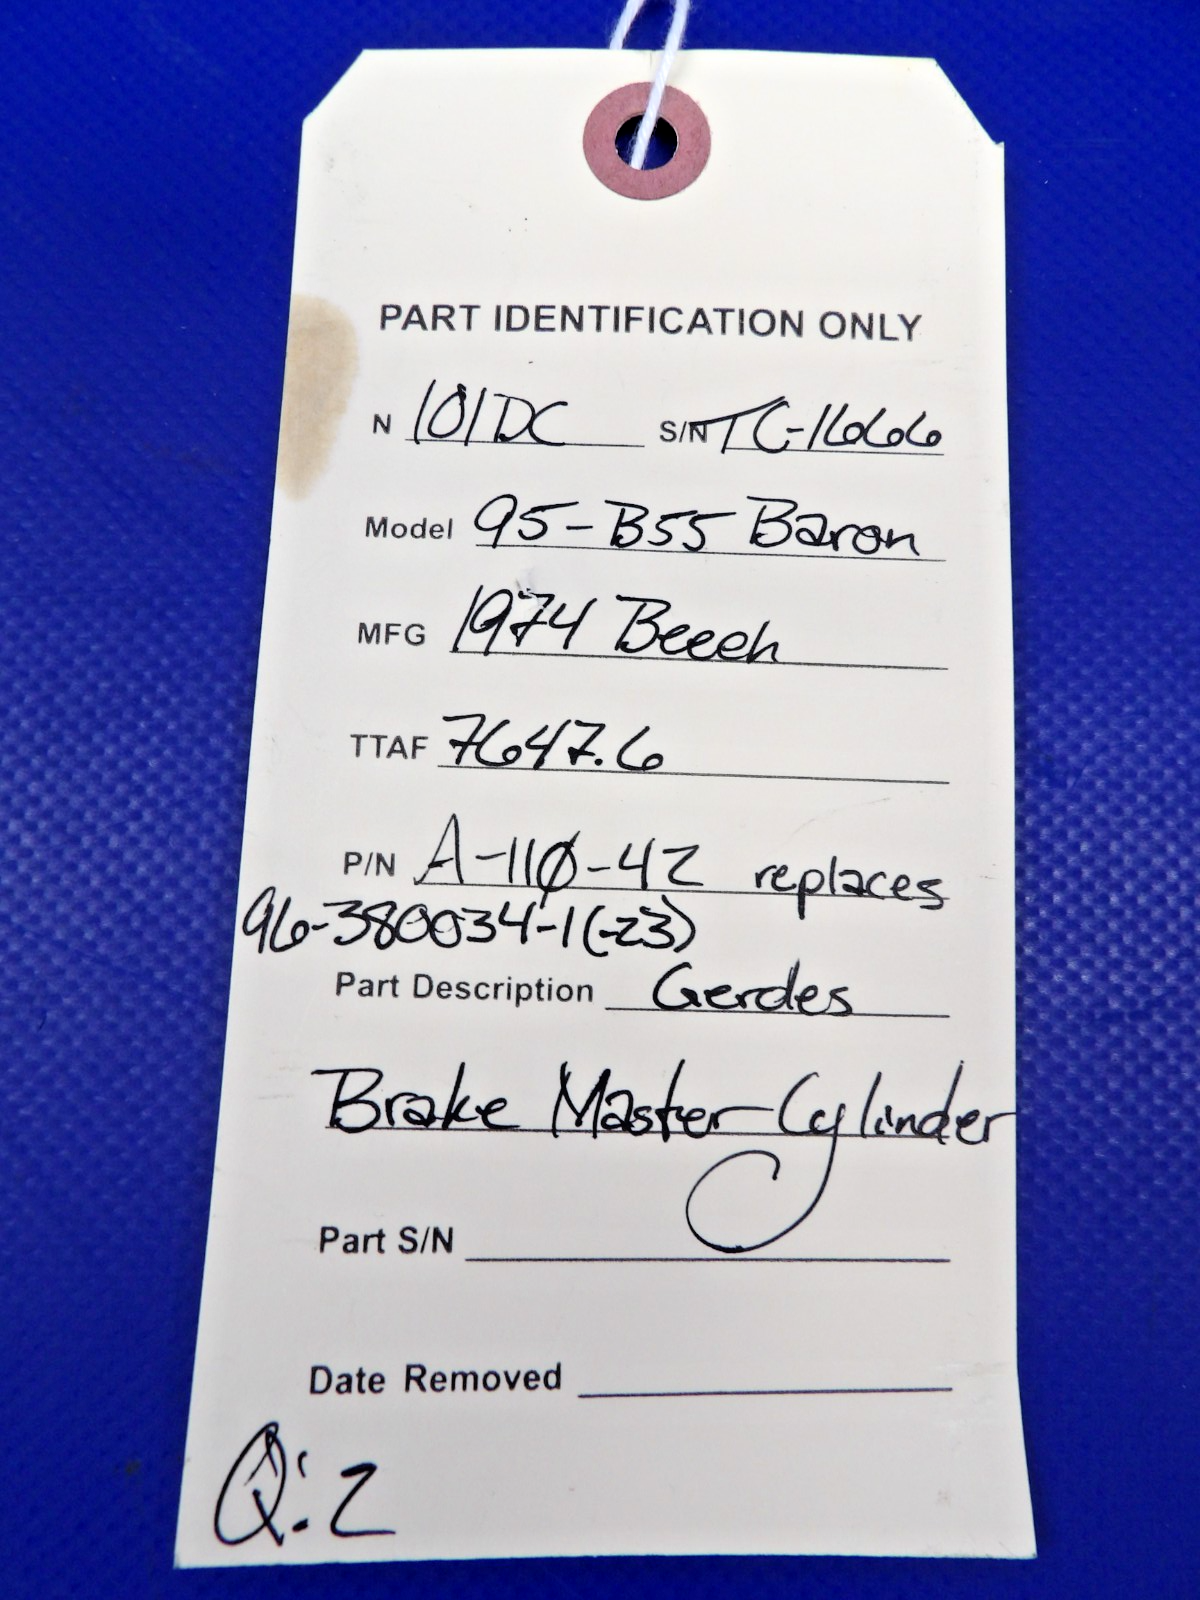 PART IDENTIFICATION ONLY
N 101DC S/N TC-1666
Model 95-B55 Baron
MFG 1974 Beech
TTAF 7647.6
P/N A-110-42 replaces
96-380034-1(-23)
Part Description Gerdes
Brake Master Cylinder
Part S/N
Date Removed
Q: 2